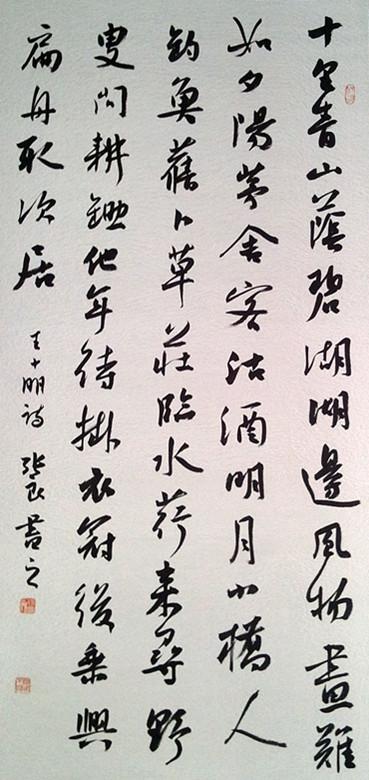 十里青山蔭碧湖湖邊風物畫難
如夕陽茅舍客沽酒明月小橋人
釣魚舊卜草莊臨水來尋野
叟問耕鋤他年待掛衣冠後乘興
扁舟取次居
王十明詩 張良書之